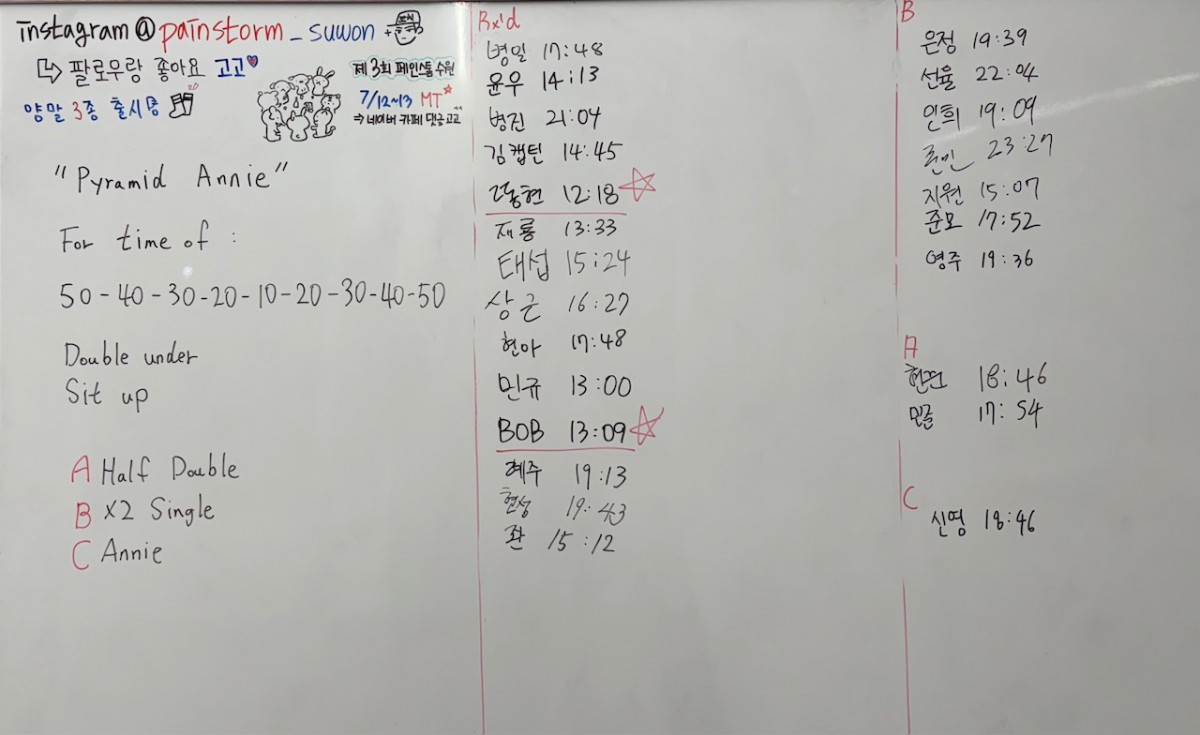 instagram @painstorm_suwon
↳ 팔로우랑 좋아요 고고♥
양말 3종 출시중
제 3회 페인스톰 수원
7/12~13 MT☆
⇒ 네이버 카페 댓글고고
"Pyramid Annie"
For time of :
50-40-30-20-10-20-30-40-50
Double under
Sit up
A Half Double
B x2 Single
C Annie
Rx'd
병일 17:48
윤우 14:13
병진 21:04
김캡틴 14:45
12:18 ☆
재룡 13:33
태섭 15:24
상근 16:27
현아 17:48
민규 13:00
BOB 13:09 ☆
예주 19:13
현성 19:43
15:12
B
은정 19:39
선율 22:04
인희 19:09
23:27
지원 15:07
준모 17:52
영주 19:36
A
18:46
17:54
C
신영 18:46